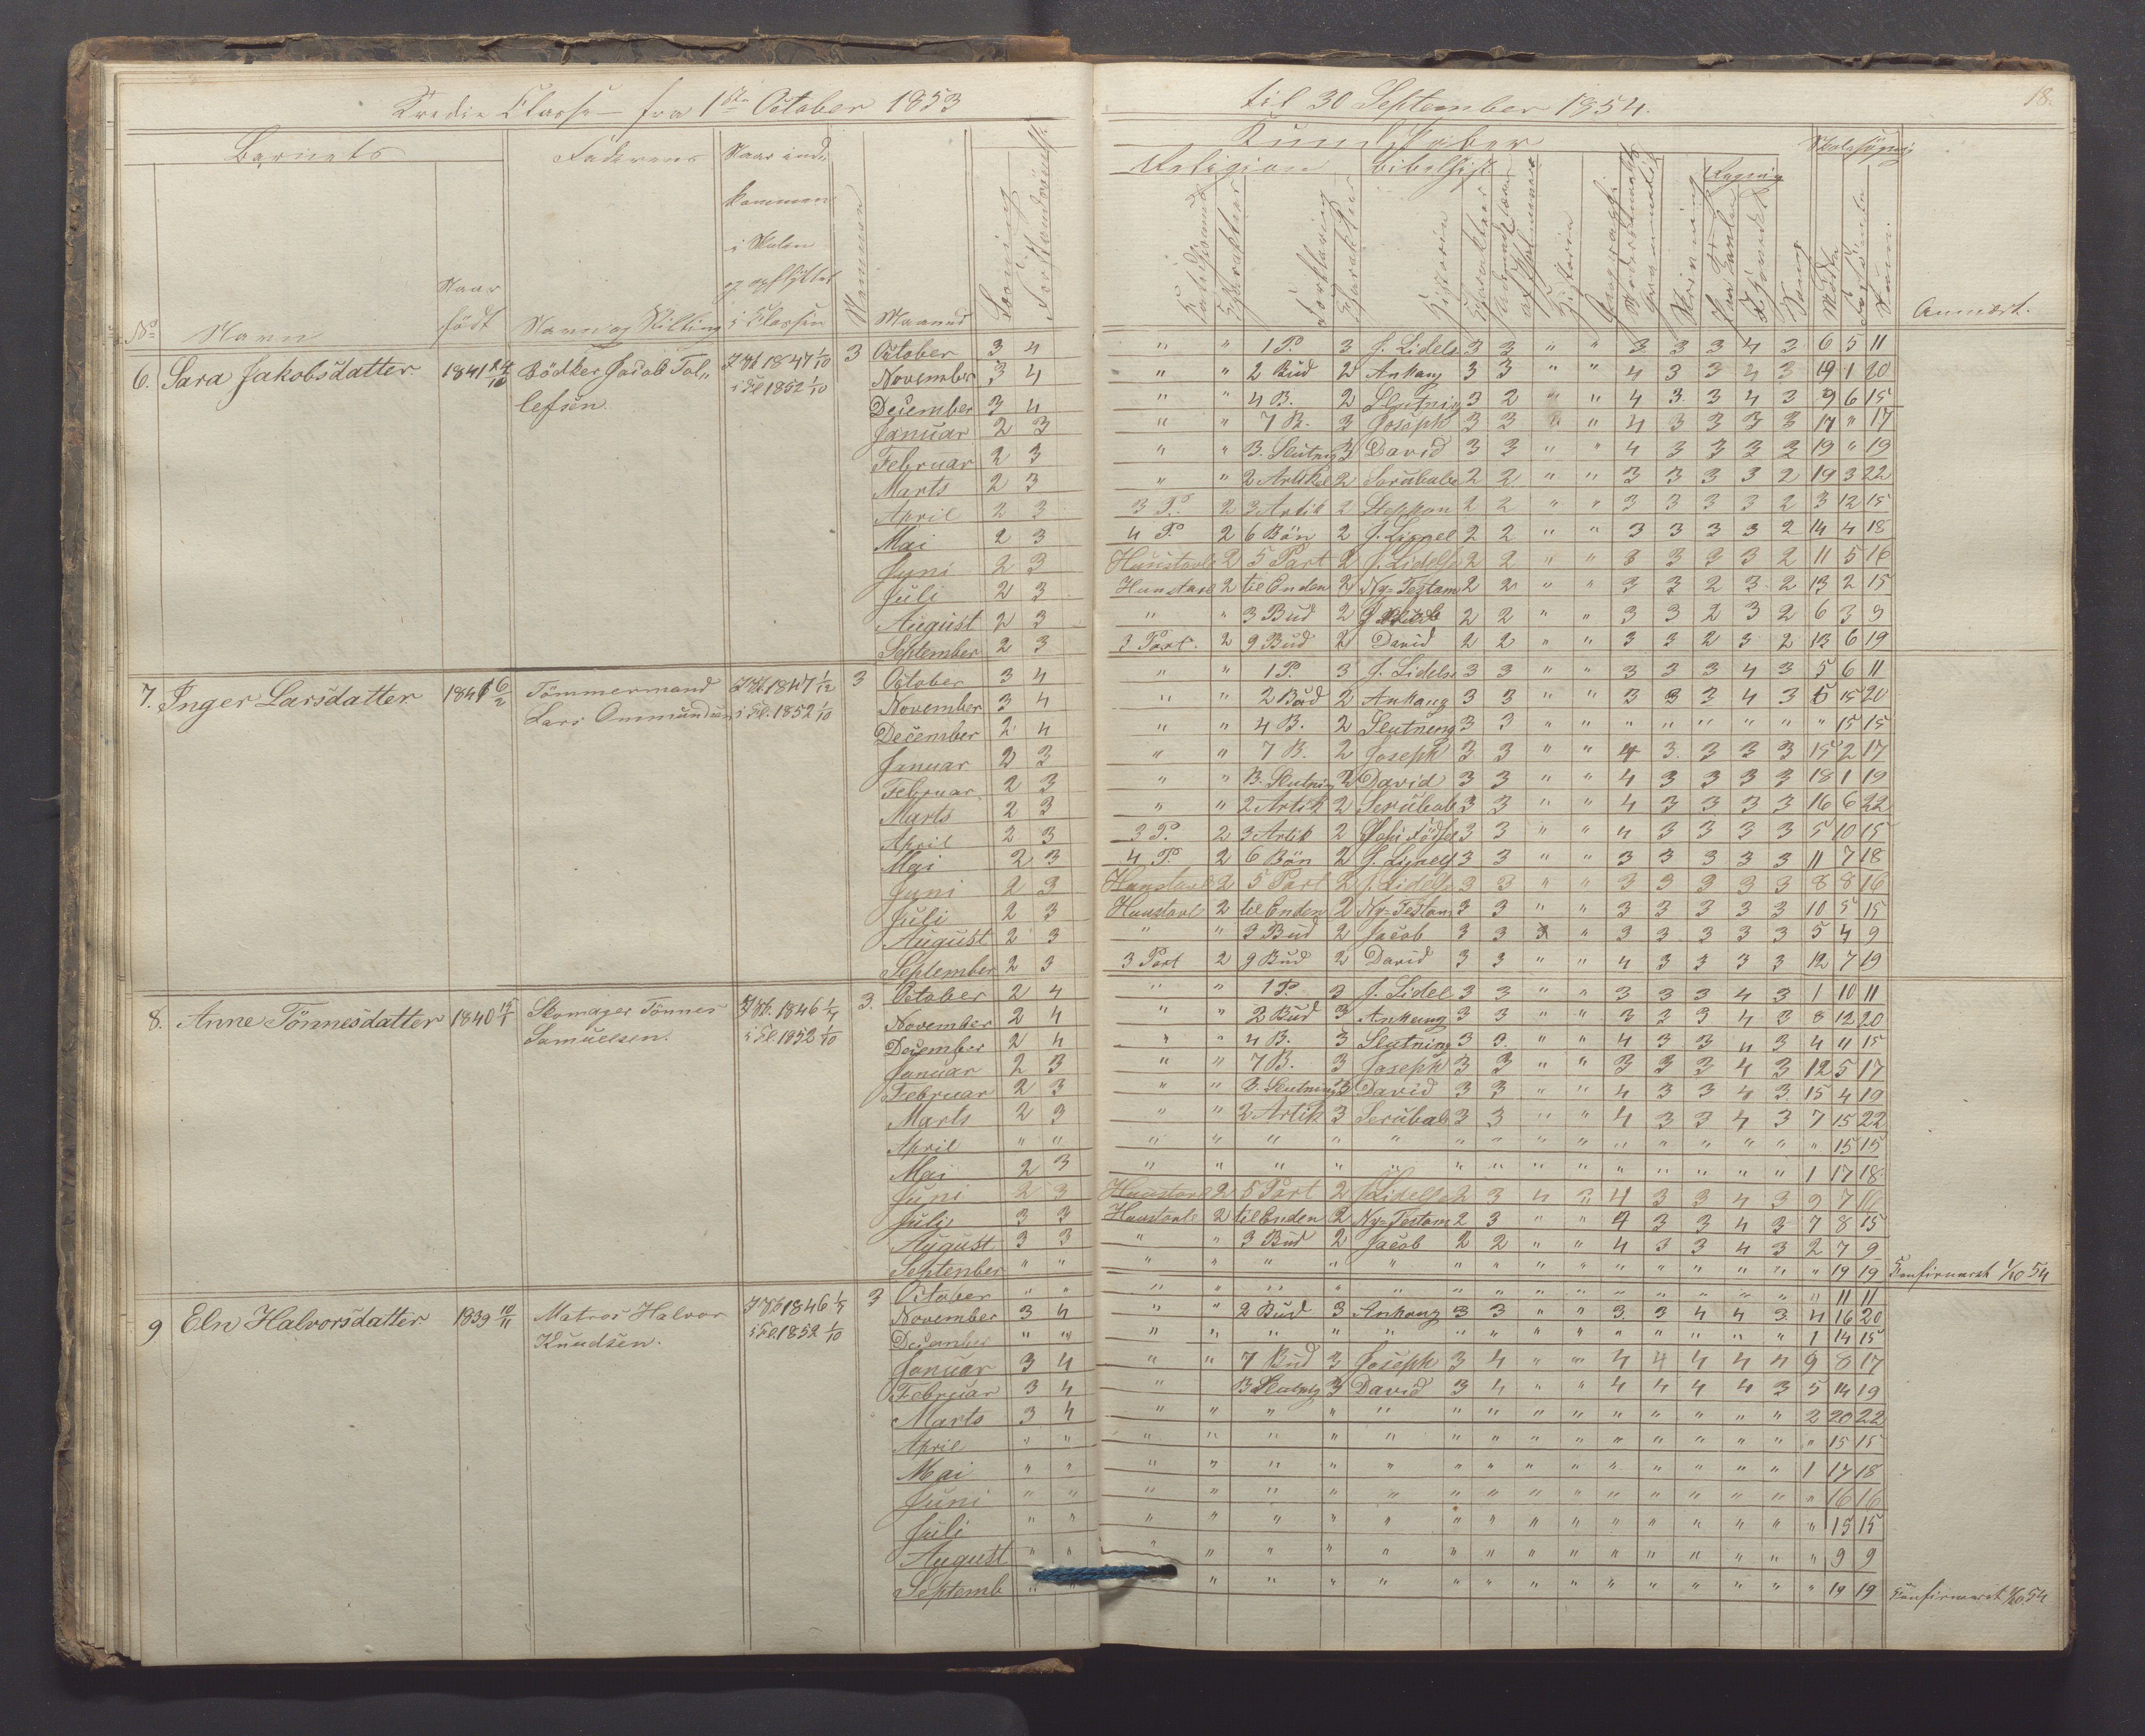 Tredie Classe fra 1ste October 1853
til 30 September 1854.
18.
Barnets
Faderens
Naar ind-
kommen
i Skolen
og opflyttet
i Classen
No
Navn
Naar
födt
Navn og Stilling
Nummer
Maaned
Læsning
Kundskaber
Religion
Bibelhist.
Forklaring
Charakter
Historie
Charakter
Historie
Geographie
Skrivning
Regning
Sang
Skolesögning
Mödte
Forsömte
Sum.
Anmærk.
6. Sara Jakobsdatter. 1841 Bödker Jacob Tol- 1847 1/10 3 October 3 4 " " 1 P. 3 J. Lidels 3 3 " " 3 3 3 4 3 6 5 11
lefsen. i Cl 1852 1/10 November 3 4 " " 2 Bud 2 Ankang 3 3 " " 4 3 3 4 3 19 1 20
December 3 4 " " 4 B. 2 Slutning 3 2 " " 4 3 3 4 3 9 6 15
Januar 2 3 " " 7 B. 3 Joseph 3 3 " " 4 3 3 3 3 17 " 17
Februar 2 3 " " B. Slutnig 3 David 3 3 " " 4 3 3 3 2 19 " 19
Marts 2 3 " " 2 Artikel 2 Serubabe 2 2 " " 3 3 3 3 2 19 3 22
April 2 3 3 P. 2 3 Artik 2 Steppan 2 2 " " 3 3 3 3 2 3 12 15
Mai 2 3 4 P. 2 6 Bön 2 2 2 " " 3 3 3 3 2 14 4 18
Juni 2 3 Huustavle 2 5 Part 2 J. Lidelse 2 2 " " 3 3 3 3 2 11 5 16
Juli 2 3 Huustavl 2 til Enden 2 Ny-Testam 2 2 " " 3 3 2 3 2 13 2 15
August 2 3 " " 3 Bud 2 2 2 " " 3 3 2 3 2 6 3 9
September 2 3 3 Part. 2 9 Bud 2 David 2 2 " " 3 3 2 3 2 13 6 19
7. Inger Larsdatter 1841 6/2 Tömmermand 1847 1/12 3 October 3 4 " " 1 P. 3 J. Lidels 3 3 " " 3 3 3 4 3 5 6 11
Lars Ommundsen i Cl. 1852 1/10 November 3 4 " " 2 Bud 2 Ankang 3 3 " " 3 3 3 4 3 5 15 20
December 2 4 " " 4 B. 2 Slutneng 3 3 " " " " " " " " 15 15
Januar 2 3 " " 7 B. 2 Joseph 3 3 " " 4 3 3 3 3 15 2 17
Februar 2 3 " " B. Slutnin 2 David 3 3 " " 4 3 3 3 3 18 1 19
Marts 2 3 " " 2 Artik 2 Serubab 3 3 " " 4 3 3 3 3 16 6 22
April 2 3 3 P. 2 3 Artik 2 3 3 " " 4 3 3 3 3 5 10 15
Mai 2 3 4 P. 2 6 Bön 2 3 3 " " 3 3 3 3 3 11 7 18
Juni 2 3 Huustavl 2 5 Part 2 J. Lidels 3 3 " " 3 3 3 3 3 8 8 16
Juli 2 3 Huustavl 2 til Enden 2 Ny-Testam 3 3 " " 3 3 3 3 3 10 5 15
August 2 3 " " 3 Bud 2 Jacob 3 3 " 3 3 3 3 3 5 4 9
September 2 3 3 Part 2 9 Bud 2 David 3 3 " " 4 3 3 3 3 12 7 19
8. Anne Tönnesdatter 1840 Skomager Tönnes 1846 3. October 2 4 " " 1 P. 3 J. Lidel 3 3 " " 3 3 3 4 3 1 10 11
Samuelsen. i Cl. 1852 1/10 November 2 4 " " 2 Bud 3 Ankang 3 3 " " 3 3 3 4 3 8 12 20
December 2 4 " " 4 B. 3 Slutning 3 3. " " 4 3 3 4 3 4 11 15
Januar 2 3 " " 7 B. 3 Joseph 3 3 " " 3 3 3 4 3 12 5 17
Februar 2 3 " " B. Slutning 3 David 3 3 " " 4 3 3 4 3 15 4 19
Marts 2 3 " " 2 Artik 3 Serubab 3 3 " " 4 3 3 4 3 7 15 22
April " " " " " " " " " " " " " " " " " 15 15
Mai 2 3 " " " " " " " " " " " " " " 1 17 18
Juni 2 3 Huustavl 2 5 Part 2 J. Lidelse 2 3 4 3 3 4 3 9 7 16
Juli 3 3 Huustavle 2 til Enden 2 Ny-Testam 2 3 " " 4 3 3 4 3 7 8 15
August 3 3 " " 3 Bud 2 Jacob 2 2 " " 4 3 3 4 3 2 7 9
September " " " " " " " " " " " " " " " " " 19 19 Konfirmeret 1/10 54
9 Eln Halvorsdatter. 1839 10/11 Matros Halvor 1846 3 October " " " " " " " " " " " " " " " " " 11 11
Knudsen. i Cl. 1852 1/10 November 3 4 " " 2 Bud 3 Ankang 3 3 " " 3 3 4 4 3 4 16 20
December " " " " " " " " " " " " " " " " 1 14 15
Januar 3 4 " " 7 Bud 3 Joseph 3 4 " " 4 4 4 4 4 9 8 17
Februar 3 4 " B Slutng 3 David 3 4 " " 4 4 4 4 3 5 14 19
Marts 3 4 " " " " " " " " " " " " " " 2 20 22
April " " " " " " " " " " " " " " " " " 15 15
Mai " " " " " " " " " " " " " " " " 1 17 18
Juni " " " " " " " " " " " " " " " " " 16 16
Juli " " " " " " " " " " " " " " " " " 15 15
August " " " " " " " " " " " " " " " " " 9 9
Septemb " " " " " " " " " " " " " " " " 19 19 Konfirmeret 1/10.54